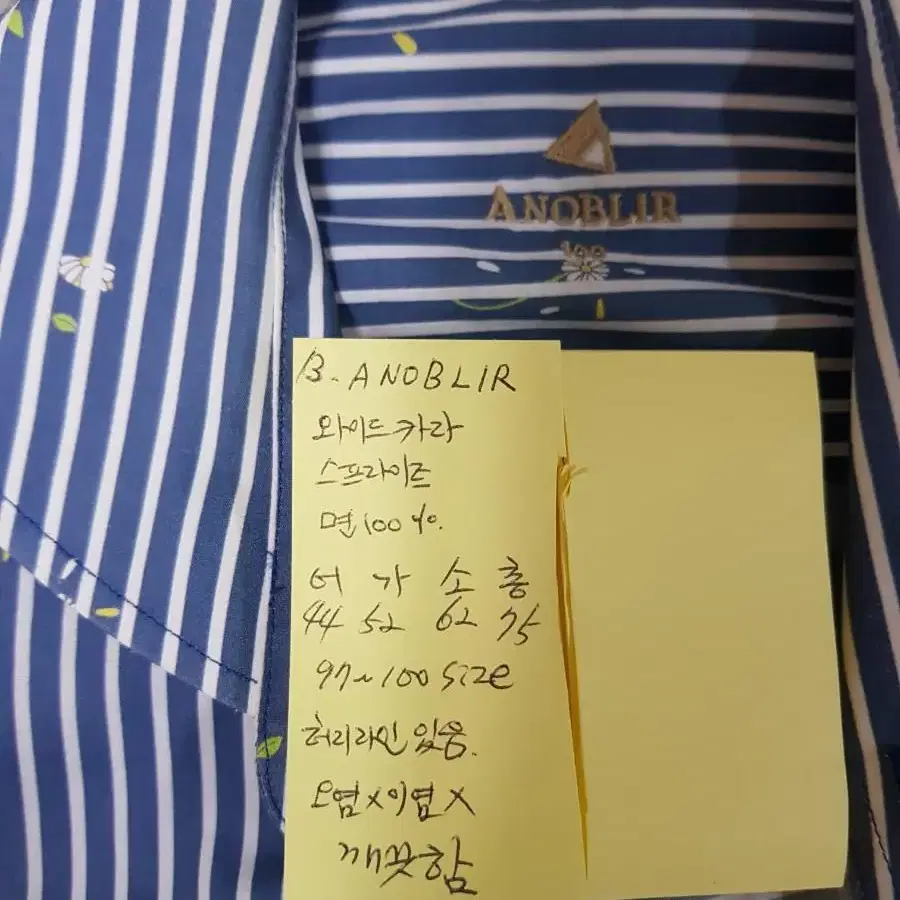 ANOBLIR
100
B. ANOBLIR
와이드카라
스프라이즈
면100%.
어 가 소 총
44 52 62 75
97~100 size
허리라인있음.
오염X이염X
깨끗함